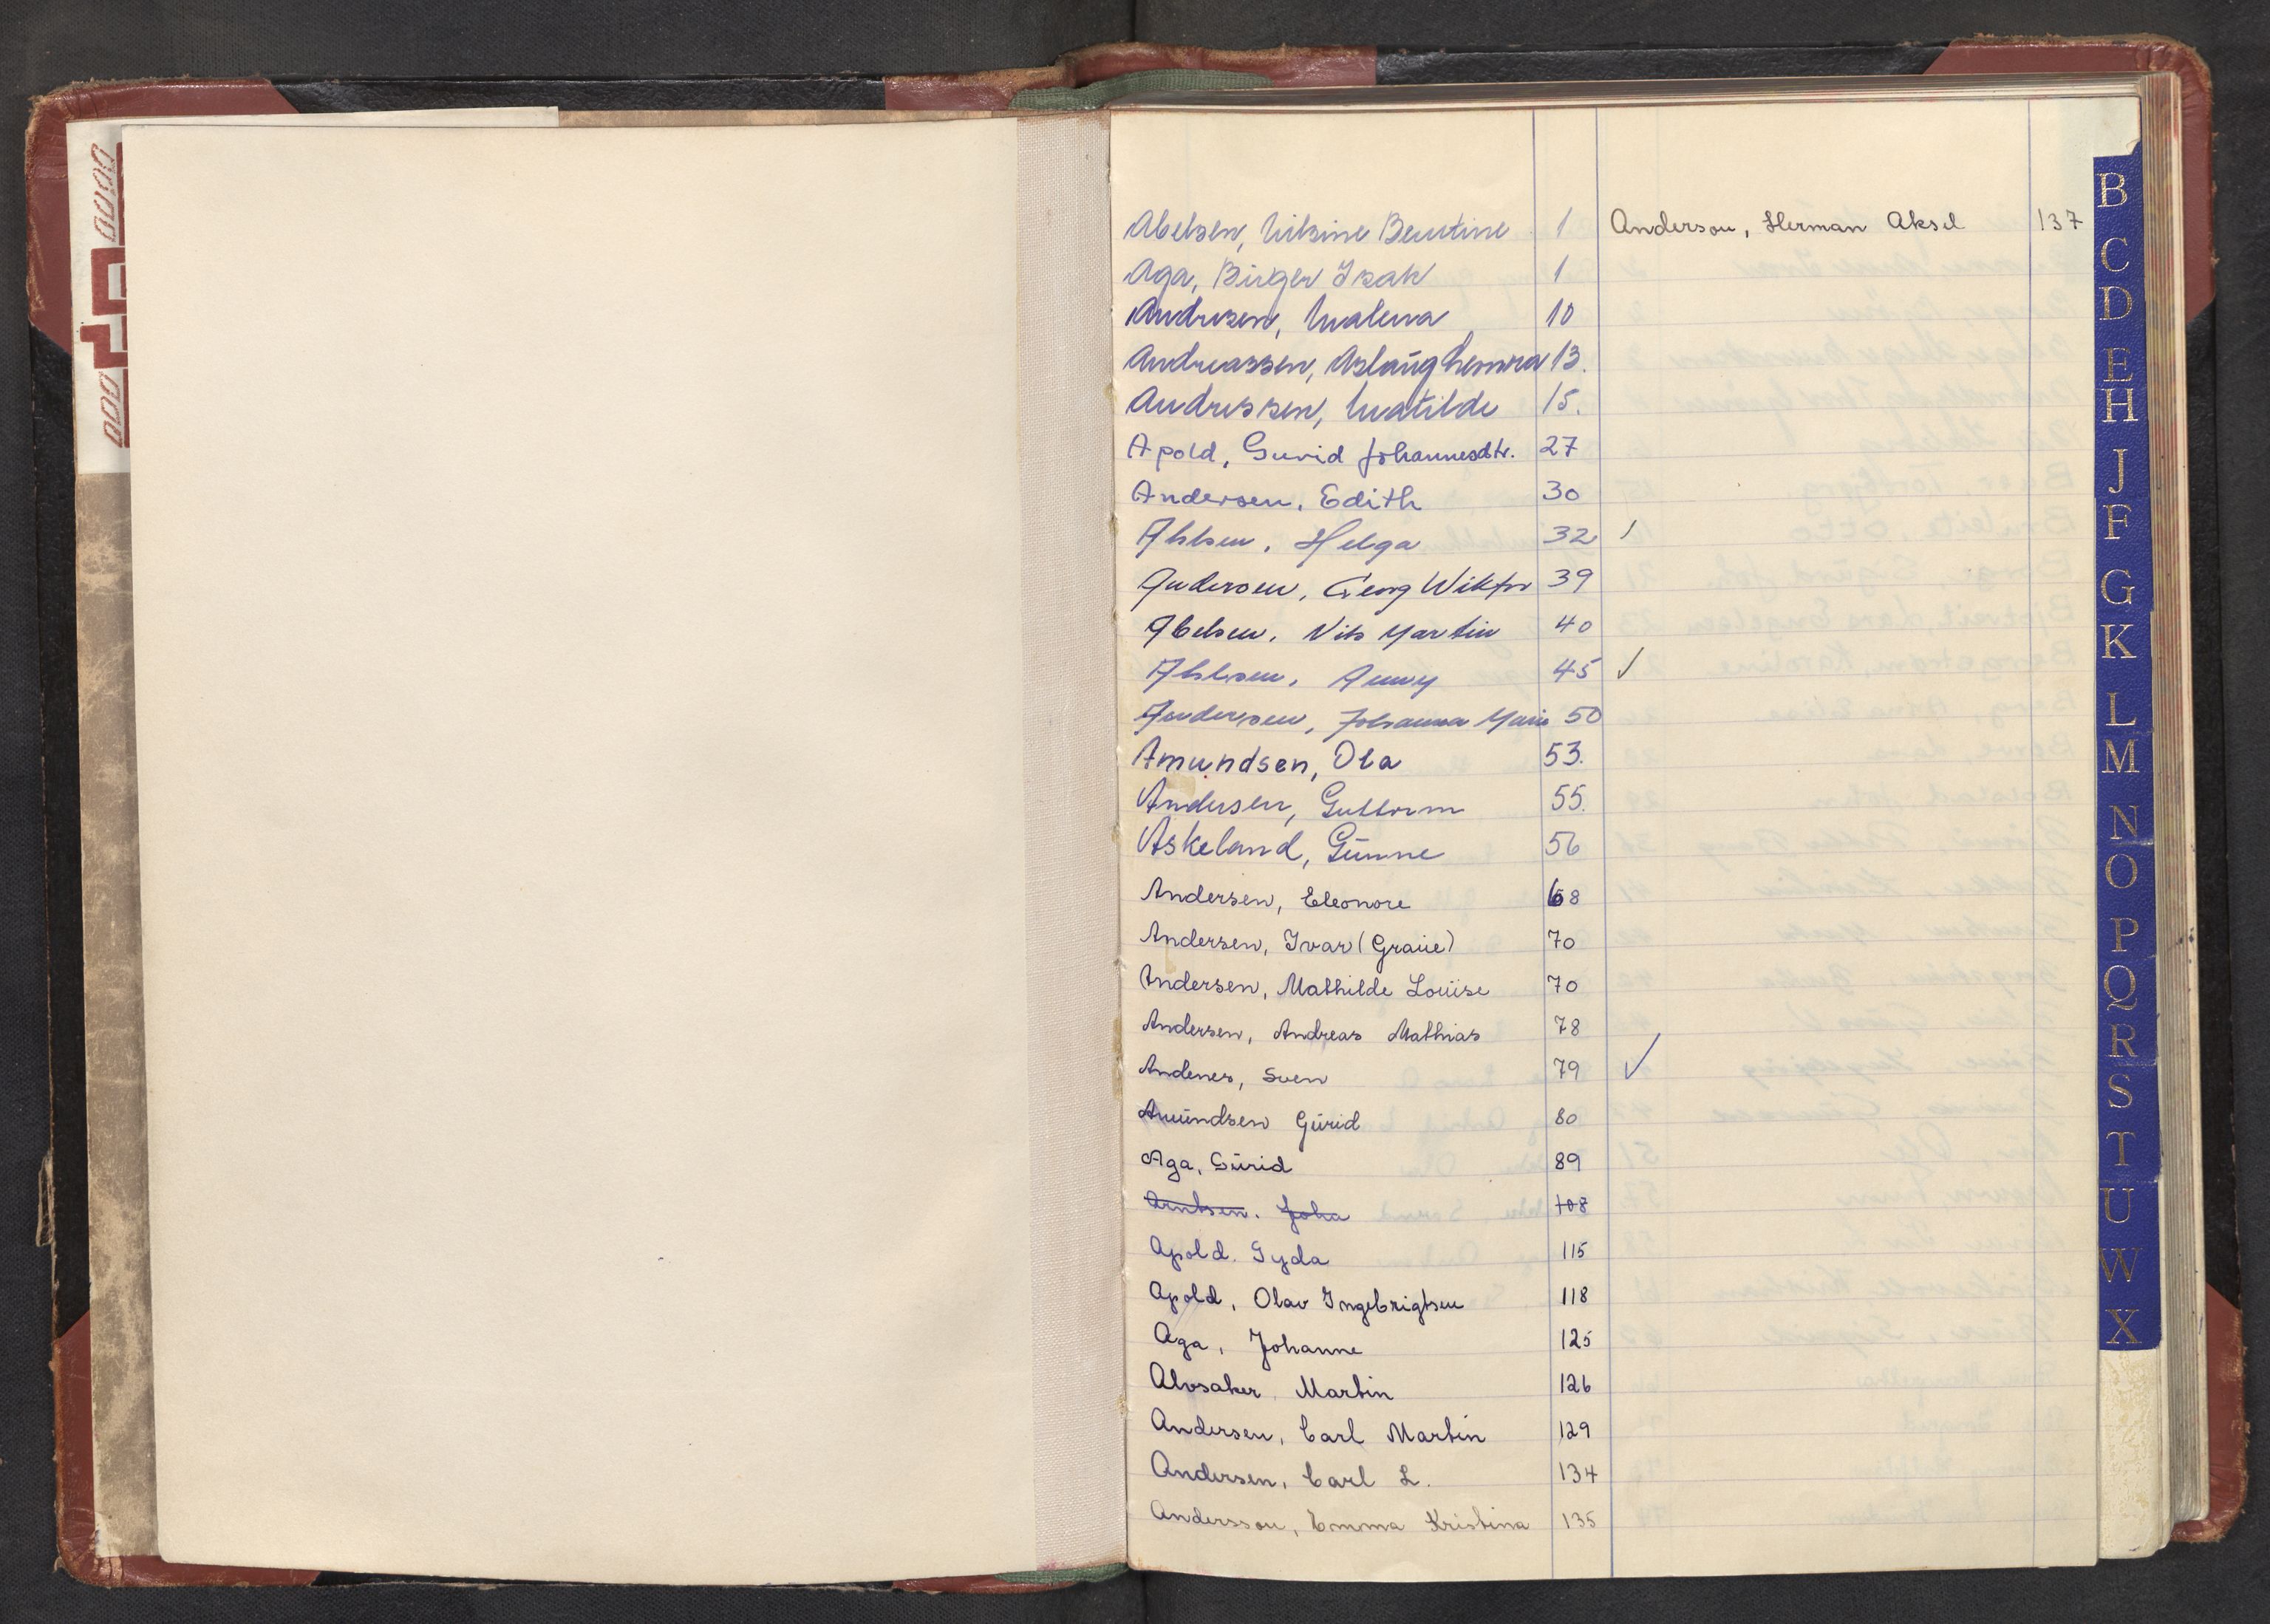 Abelsen, Nilsine Bentine 1
Aga, Birger Isak 1
Andresen, Malena 10
Andreassen, Aslaug 13.
Andressen, Matilde 15.
Apold, Guvid Johannesdtr. 27
Andersen, Edith 30
Ahlsen, Helga 32 ✓
Andersen, Georg Wiktor 39
Abelsen, Nils Martin 40
Ahlsen, Anny 45 ✓
Andersen, Johanna Marie 50
Amundsen, Ola 53.
Andersen, Guttorm 55.
Askeland, Gunne 56
Andersen, Eleonore 68
Andersen, Ivar (Graue) 70
Andersen, Mathilde Louise 70
Andersen, Andreas Mathias 78
Andenes, Sven 79 ✓
Amundsen Gurid 80
Aga, Gurid 89
Arntsen. Joha 108
Apold. Gyda 115
Apold, Olav Ingebrigtsen 118
Aga, Johanne 125
Alvsaker Martin 126
Andersen, Carl Martin 129
Andersen, Carl L. 134
Andersson, Emma Kristina 135
Anderson, Herman Aksel 137
B
C
D
E
H
J
F
G
K
L
M
N
O
P
Q
R
S
T
U
W
X